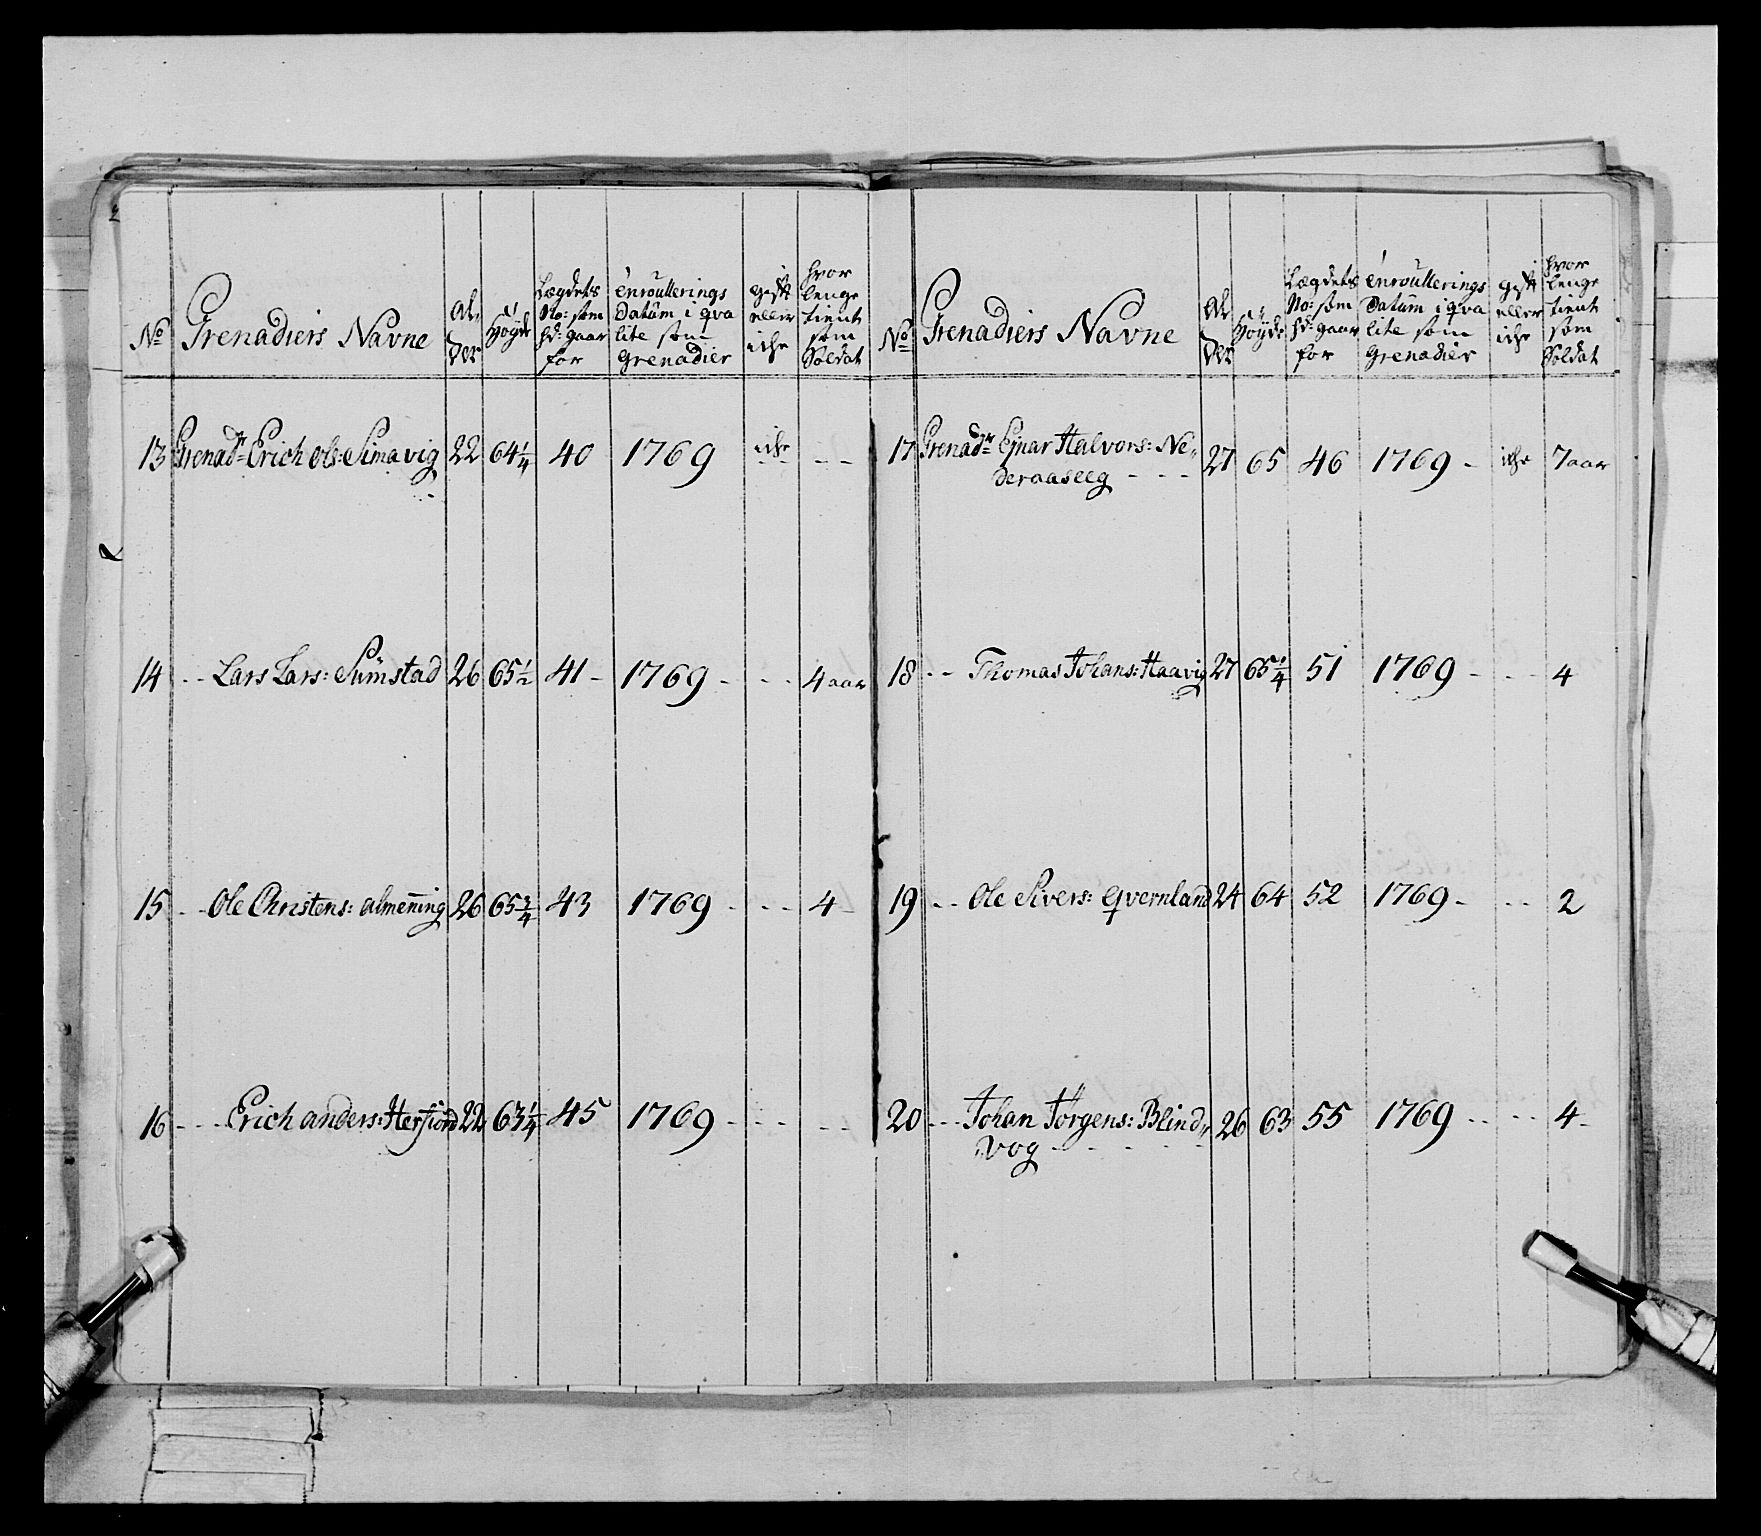 No Grenadiers Navne Al, der Høyde Lægdets No: som hd: gaar for enroullerings Datum i qva lite som Grenadier gift eller iche hvor lenge tient som Soldat
13 Grenadr Erich Ols: Simavig 22 64 1/4 40 1769 iche - -
14 - - Lars Lars: Sümstad 26 65 1/2 41 - 1769 - - - 4 aar
15 - - Ole Christens: Almening 26 65 3/4 43 1769 - - - 4 -
16 - - - Erich Anders: Herfiord 22 63 1/4 45 1769 - - - - -
No Grenadiers Navne Al, der Høyde Lægdets No: som hd: gaar for enroullerings Datum i qva lite som Grenadier gift eller iche hvor lenge tient som Soldat
17 Grenadr Ejnar Halvors: Ne,,
deraaseeg - - - 27 65 46 1769 - iche 7 aar
18 - - Thomas Johans: Haavig 27 65 1/4 51 1769 - - - 4
19 - - Ole Sivers: Qvernland 24 64 52 1769 - - - 2
20 - - - Johan Jørgens: Blind,,
Vog - - - - 26 63 55 1769 - - - 4 -